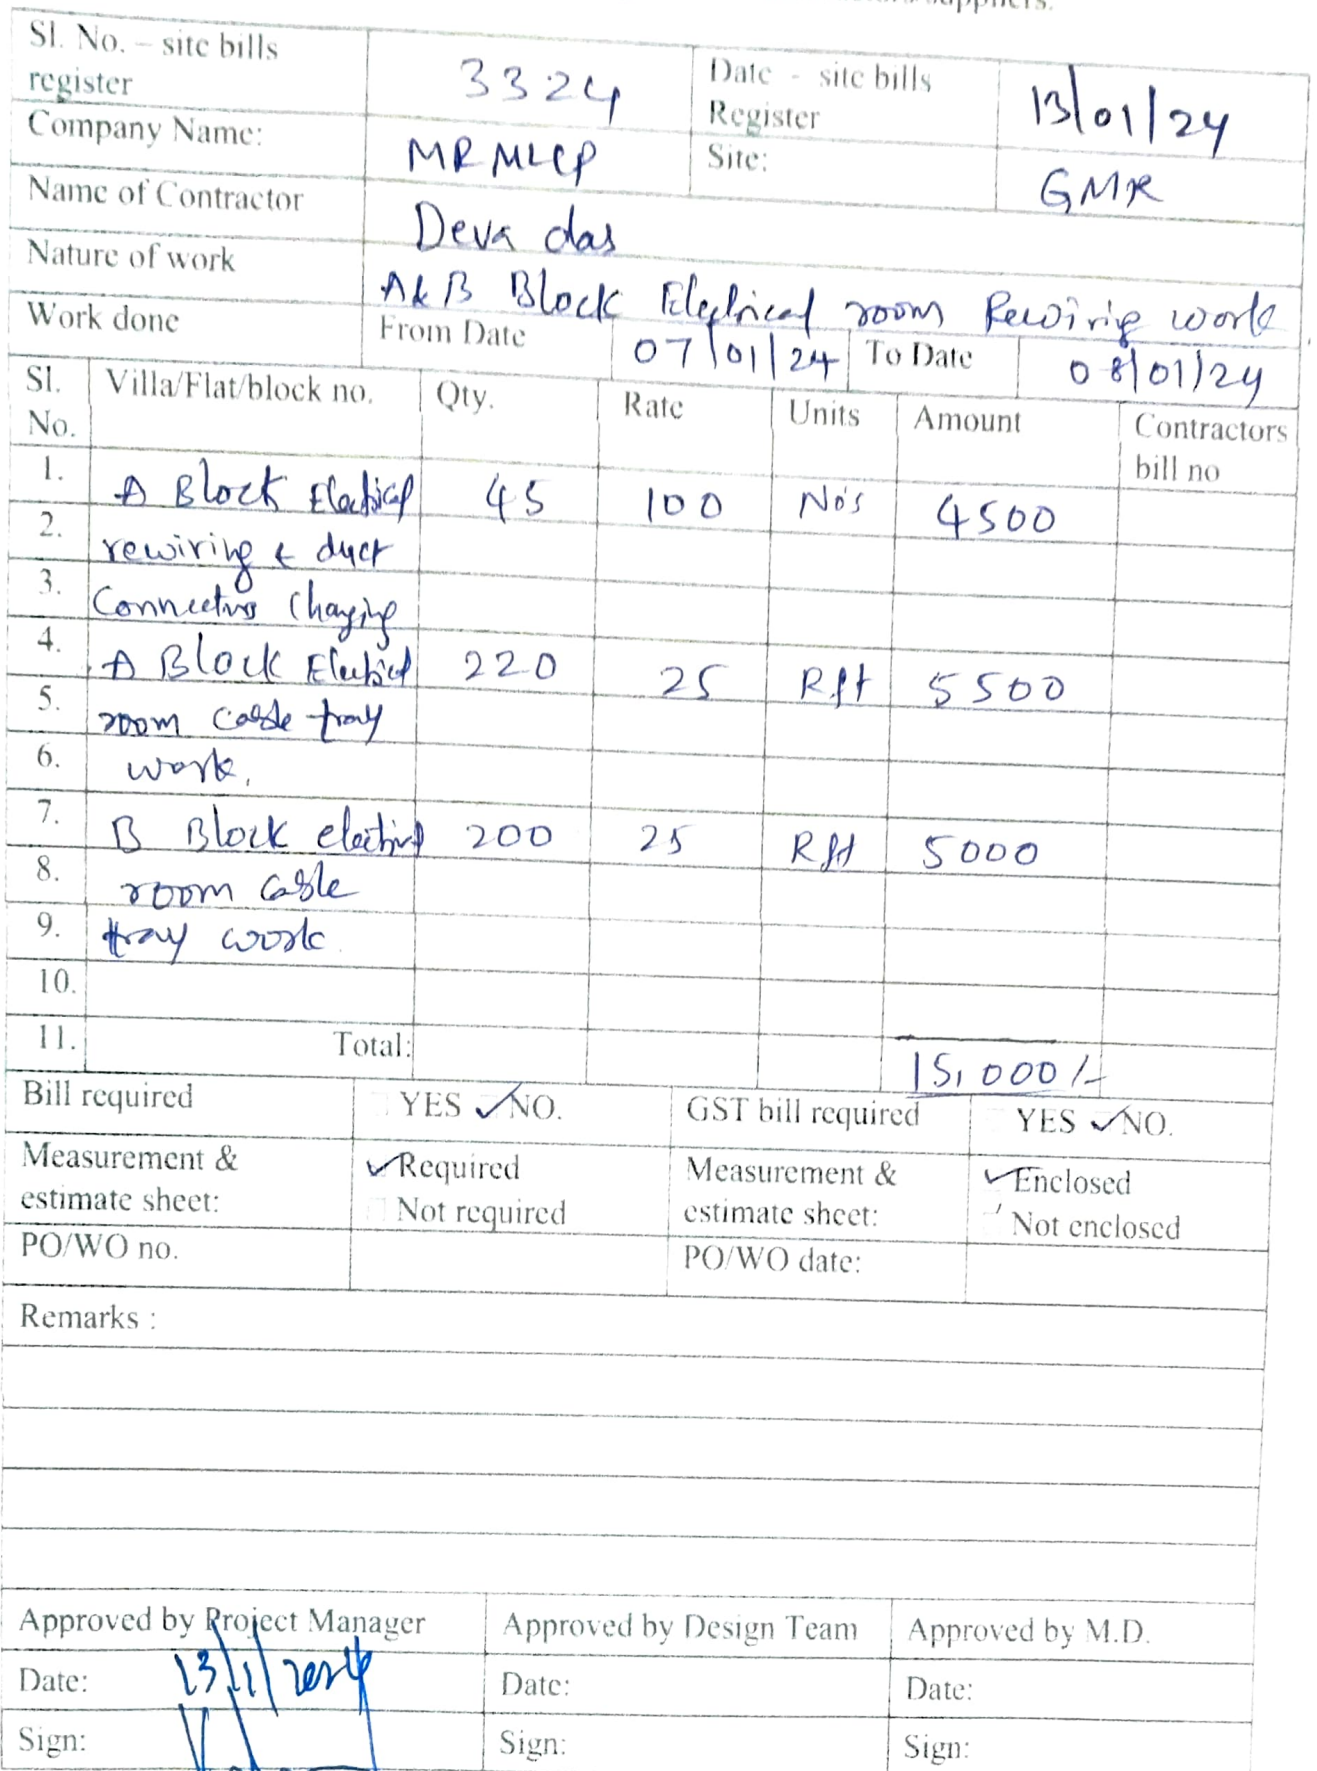 Sl. No. – site bills register 3324 Date - site bills Register 13/01/24
Company Name: MRMLLP Site: GMR
Name of Contractor Deva das
Nature of work A & B Block Electrical room Rewiring work
Work done From Date 07/01/24 To Date 08/01/24
Sl. No. Villa/Flat/block no. Qty. Rate Units Amount Contractors bill no
1. A Block Electrical 45 100 No's 4500
2. rewiring & duct
3. Connecting Changing
4. A Block Electrical 220 25 Rft 5500
5. room cable tray
6. work.
7. B Block electrical 200 25 Rft 5000
8. room cable
9. tray work
10.
11. Total: 15,000/-
Bill required YES ✓NO. GST bill required YES ✓NO.
Measurement & estimate sheet: ✓Required Not required Measurement & estimate sheet: ✓Enclosed Not enclosed
PO/WO no. PO/WO date:
Remarks :
Approved by Project Manager Approved by Design Team Approved by M.D.
Date: 13/1/2024 Date: Date:
Sign: Sign: Sign: